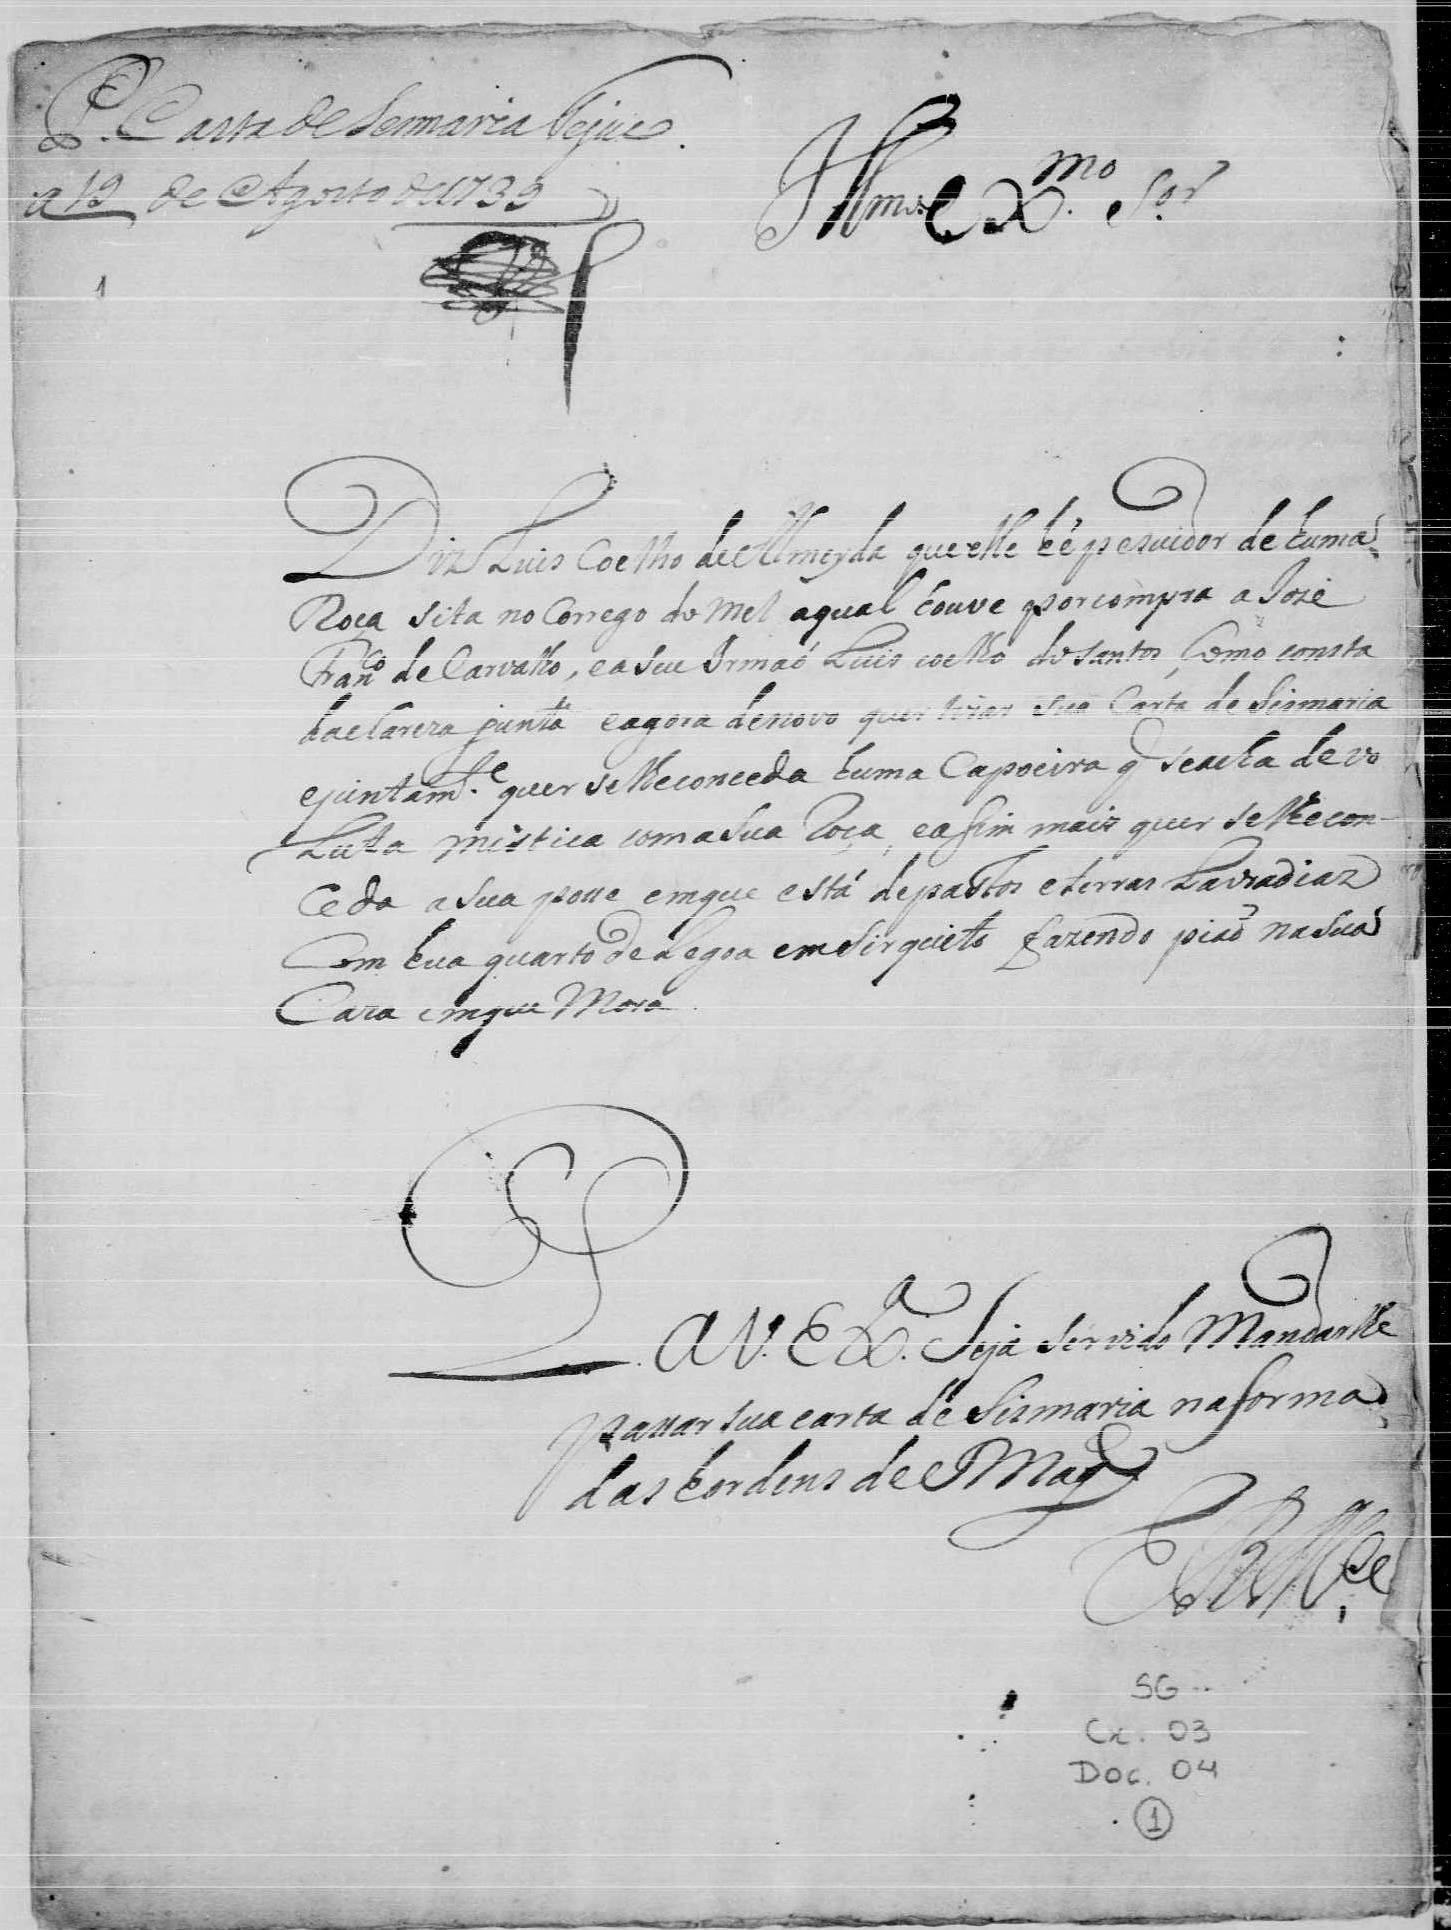 P. Carta de Sesmaria Tejuco.
a 19 de Agosto de 1739
1
Illmo. e Ex.mo S.or
Diz Luis Coelho de Almeyda que elle hé pesuidor de huma
Roça sita no Corrego do Mel aqual houve por compra a Jozé
Franco de Carvalho, ea seu Irmaó Luis coelho do santos, Como consta
daclareza junta eagora denovo quer tirar sua Carta de Sismaria
ejuntam.te quer selheconceda huma Capoeira q seacha devo
Luta mistica comasua Roça, eassim mais quer selhecon-
Ceda asua posse emque está depastos eterras Lavradiaz
Com hua quarto de Legoa emsirquito fazendo piaõ nasua
Caza emque Mora
P. a V. Ex.a Seja servido Mandarlhe
passar sua carta de Sismaria naforma
das hordens de S Mag.de
E R M.ce
SG
Cx. 03
Doc. 04
1